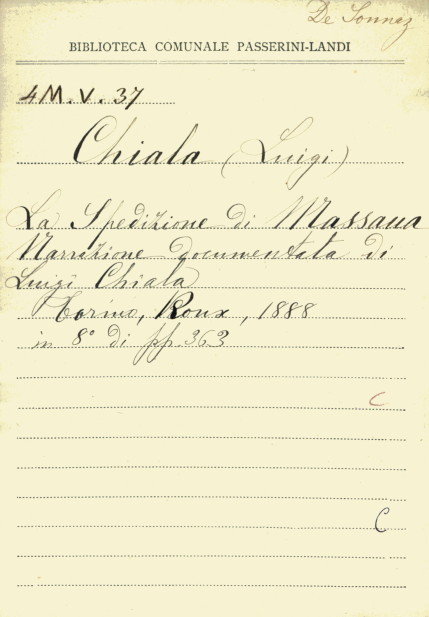 De Sonnaz
BIBLIOTECA COMUNALE PASSERINI-LANDI
4M.V.37
Chiala (Luigi)
La Spedizione di Massaua
Narrazione documentata di
Luigi Chiala
Torino, Roux, 1888
in 8° di pp. 363
C
C